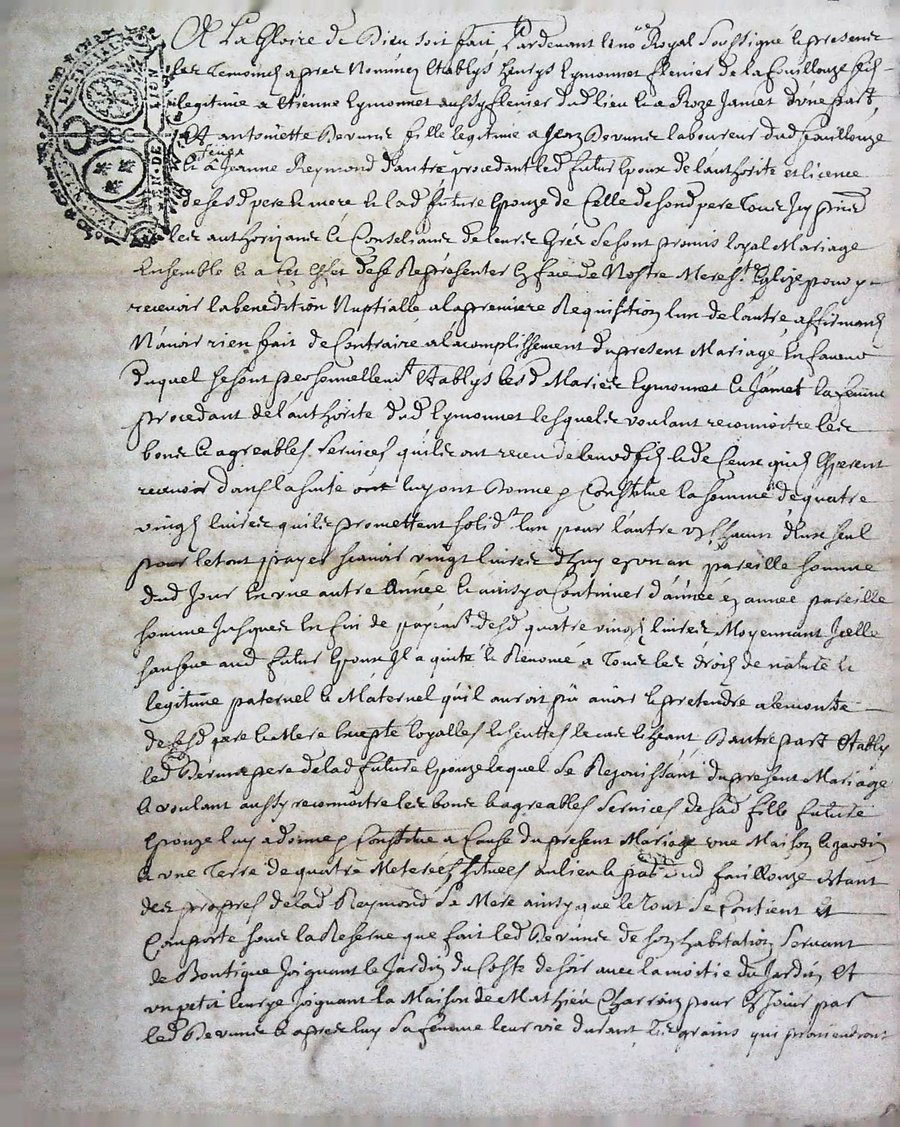 A La Gloire de Dieu soit fait, Pardevant le no.re Royal Soussigné & presens
les Temoins apres Nommez Etablys henrys Eymonnet flenier de la fouillouze fils
legitime a Etienne Eymonnet aussy flenier dud lieu & a Roze Jamet d'une part
Et antoinette Deruine fille legitime a Jean Deruine laboureur dud fouillouze
& a feüe Jeanne Reymond d'autre procedant led futur Epoux de l'authorité et licence
de sesd pere & mere & lad future Epouze de Celle de sond pere Tous Jcy pnts
les authorizans & Conseliants de leurs Grés se sont promis loyal Mariage
Ensemble & a Cet Effet de se Representer En face de Nostre Mere S.te Eglize pour y
recevoir la benedition Nuptialle a la premiere Requisition lun de lautre affirmans
N'avoir rien fait de Contraire a lacomplissement du present Mariage En faveur
duquel se sont personnellem.t Etablys lesd Mariés Eymonnet & Jamet la femme
procedant de l'authorité dud Eymonnet lesquels voulant reconnoitre les
bons & agreables services quils ont receu de leurd fils & de Ceux quils Esperent
recevoir dans la suite luy ont Donné & Constitué la somme de quatre
vingt livres quils promettent solid.t lun pour l'autre un seul
pour le tout payer scavoir vingt livres d'huy en un an pareille somme
dud Jour En une autre Année & ainsy a Continuer d'année en année pareille
somme Jusques En fin de payem.t desd quatre vingt livres Moyennant Jcelle
somme aud futur Epoux Jl a quitté & Renoncé a Tous les droits de nature &
legitime paternel & Maternel qu'il auroit pû avoir & pretendre
de sesd pere & Mere Excepté loyalles Echuttes le cas Echeant, Dautre part Etably
led Deruine pere de lad future Epouze lequel se Rejouissant du present Mariage
& voulant aussy reconnoitre les bons & agreables services de sad fille future
Epouze luy a donné & Constitué a Cause du present Mariage une Maison & jardin
& une Terre de quatre Meterées Situees au lieu & par.sse dud fouillouze Estant
des propres de lad Reymond Sa Mere ainsy que le Tout se Contient Et
Comporte sous la Reserve que fait led Deruine de son habitation servant
de Boutique Joignant le Jardin du Costé de soir avec la moitié du Jardin Et
un petit Joignant la Maison de Mathieu Charroin pour En Jouir par
led Deruine & apres luy Sa femme leur vie durant Les grains qui proviendront